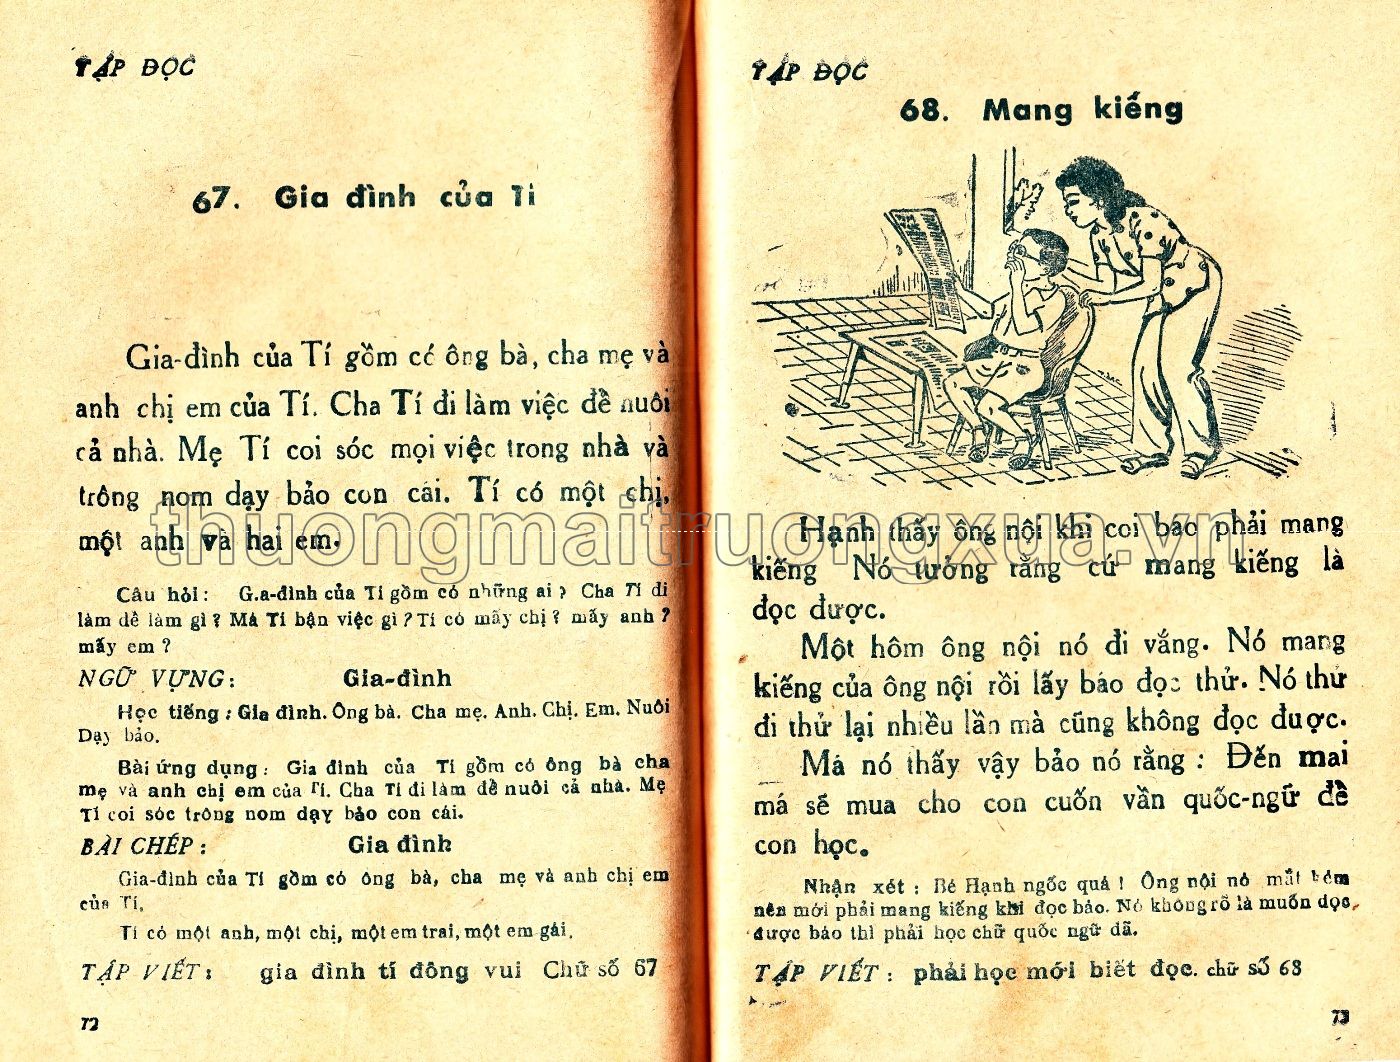 TẬP ĐỌC
67. Gia đình của Tí
Gia-đình của Tí gồm có ông bà, cha mẹ và
anh chị em của Tí. Cha Tí đi làm việc để nuôi
cả nhà. Mẹ Tí coi sóc mọi việc trong nhà và
trông nom dạy bảo con cái. Tí có một chị,
một anh và hai em.
Câu hỏi : Gia-đình của Tí gồm có những ai ? Cha Tí đi
làm để làm gì ? Má Tí bận việc gì ? Tí có mấy chị ? mấy anh ?
mấy em ?
NGỮ VỰNG : Gia-đình
Học tiếng : Gia đình. Ông bà. Cha mẹ. Anh. Chị. Em. Nuôi
Dạy bảo.
Bài ứng dụng : Gia đình của Tí gồm có ông bà cha
mẹ và anh chị em của Tí. Cha Tí đi làm để nuôi cả nhà. Mẹ
Tí coi sóc trông nom dạy bảo con cái.
BÀI CHÉP : Gia đình
Gia-đình của Tí gồm có ông bà, cha mẹ và anh chị em
của Tí.
Tí có một anh, một chị, một em trai, một em gái.
TẬP VIẾT : gia đình tí đông vui Chữ số 67
72
TẬP ĐỌC
68. Mang kiếng
Hạnh thấy ông nội khi coi báo phải mang
kiếng Nó tưởng rằng cứ mang kiếng là
đọc được.
Một hôm ông nội nó đi vắng. Nó mang
kiếng của ông nội rồi lấy báo đọc thử. Nó thử
đi thử lại nhiều lần mà cũng không đọc được.
Má nó thấy vậy bảo nó rằng : Đến mai
má sẽ mua cho con cuốn vần quốc-ngữ để
con học.
Nhận xét : Bé Hạnh ngốc quá ! Ông nội nó mắt kém
nên mới phải mang kiếng khi đọc báo. Nó không rõ là muốn đọc
được báo thì phải học chữ quốc ngữ đã.
TẬP VIẾT : phải học mới biết đọc. chữ số 68
73
thuongmaitruongxua.vn